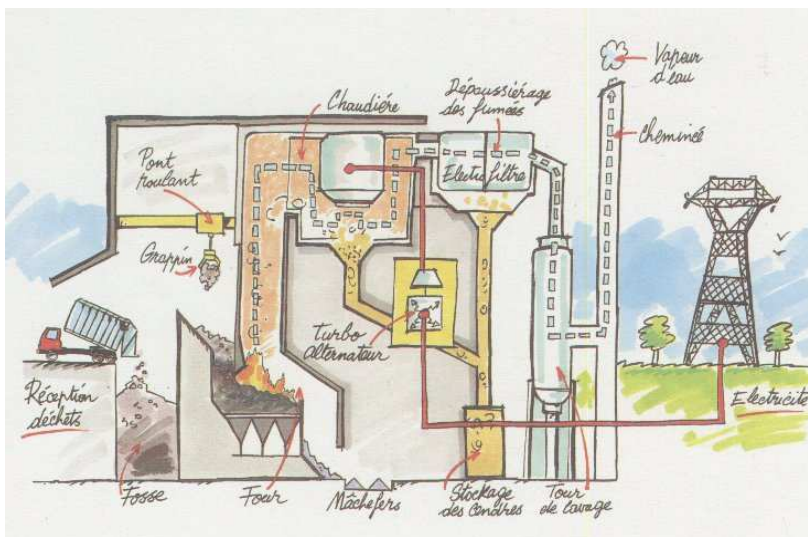 Vapeur
d'eau
Dépoussiérage
des fumées
Chaudière
Cheminée
Pont
roulant
Electrofiltre
Grappin
Turbo
alternateur
Réception
déchets
Electricité
Fosse
Four
Mâchefers
Stockage
des Cendres
Tour
de lavage